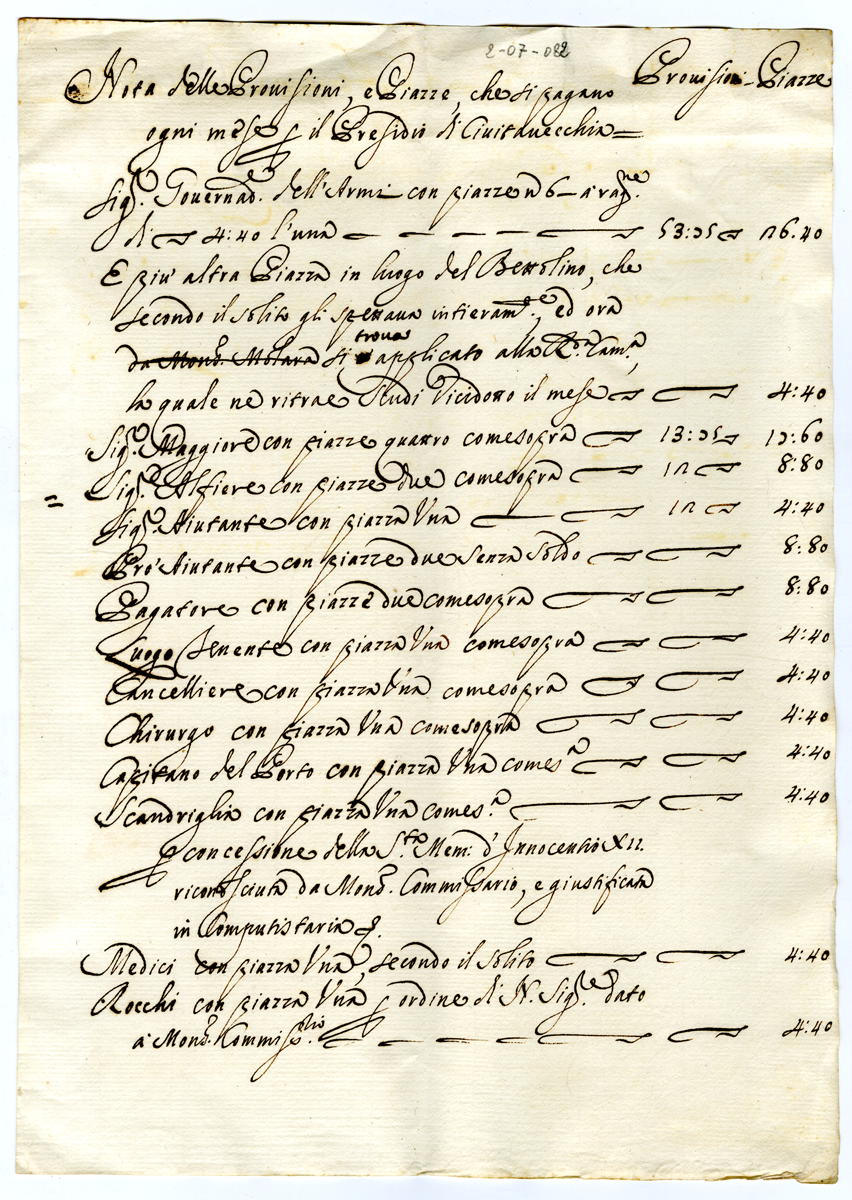 2-07-082
Nota delle Provisioni, e Piazze, che si pagano Provisioni - Piazze
ogni mese p il Presidio di Civitavecchia =
Sig.re Governad.re dell'Armi con piazze n 6 - a' rag.ne
di 4:40 l'una 53:35 26.40
E piu' altra Piazza in luogo del Bettolino, che
secondo il solito gli spettava intieram.te, ed ora
da Mons.r Molara si trova applicato alla R.da Cam.a,
la quale ne ritrae Scudi Dicidotto il mese 4:40
Sig.r Maggiore con piazze quattro comesopra 13:35 17:60
Sig.r Alfiere con piazze due comesopra 12 8:80
=
Sig.r Aiutante con piazza Una 12 4:40
Pro' Aiutante con piazze due senza soldo 8:80
Pagatore con piazze due comesopra 8:80
Luogo Tenente con piazza Una comesopra 4:40
Cancelliere con piazza Una comesopra 4:40
Chirurgo con piazza Una comesopra 4:40
Capitano del Porto con piazza Una comes.a 4:40
Scandriglia con piazza Una comes.a 4:40
p concessione della S.ta Mem: d'Innocentio XII.
riconosciuta da Mons.r Commissario, e giustificata
in Computistaria
Medici con piazza Una, secondo il solito 4:40
Rocchi con piazza Una p ordine di N. Sig.re dato
a' Mons.r Commiss.rio 4:40